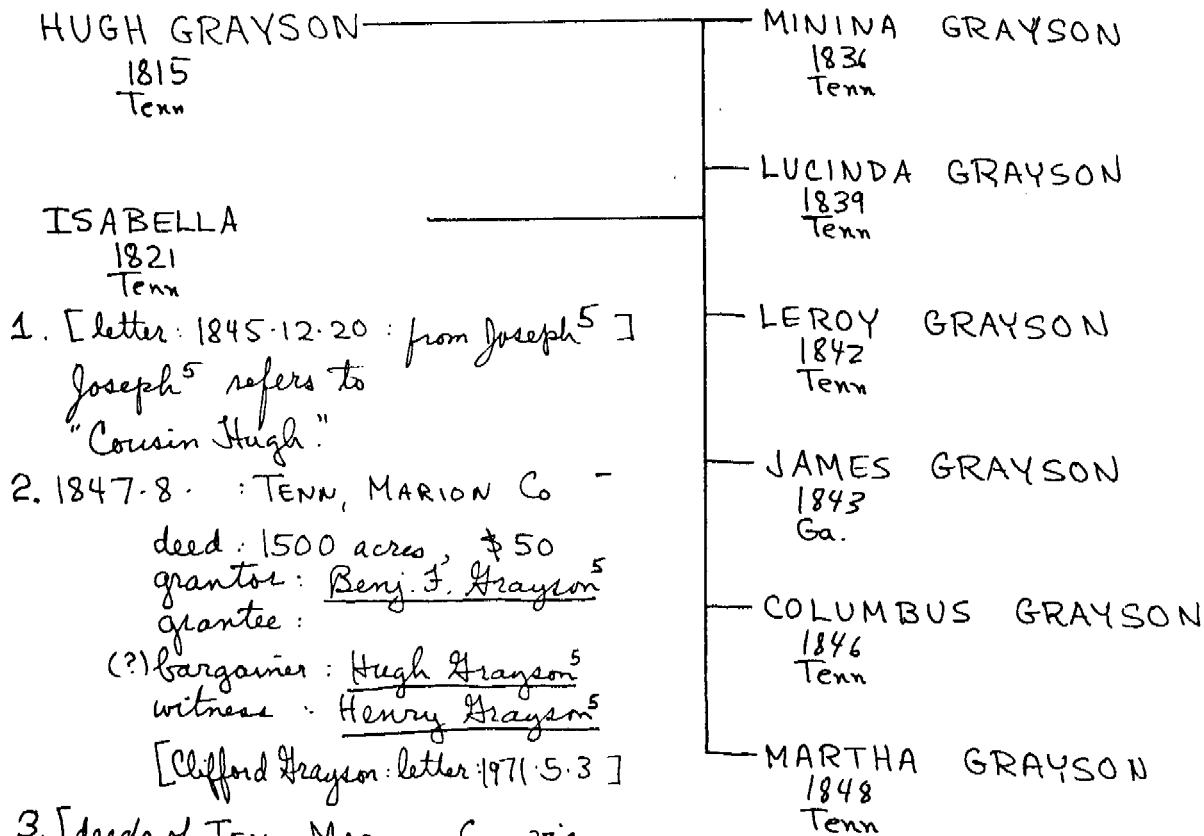 HUGH GRAYSON
1815
Tenn
ISABELLA
1821
Tenn
1. [letter: 1845.12.20 : from Joseph5]
Joseph5 refers to
"Cousin Hugh."
2. 1847.8. : TENN, MARION Co -
deed: 1500 acres, $50
grantor: Benj. F. Grayson5
grantee:
(?) bargainer: Hugh Grayson5
witness: Henry Grayson5
[Clifford Grayson: letter: 1971.5.3]
3. [deeds of
MININA GRAYSON
1836
Tenn
LUCINDA GRAYSON
1839
Tenn
LEROY GRAYSON
1842
Tenn
JAMES GRAYSON
1843
Ga.
COLUMBUS GRAYSON
1846
Tenn
MARTHA GRAYSON
1848
Tenn